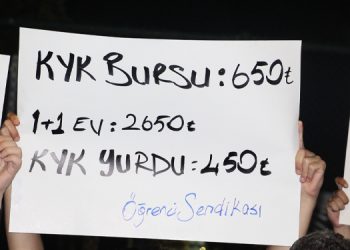 KYK BURSU: 650₺
1+1 EV: 2650₺
KYK YURDU: 450₺
Öğrenci Sendikası